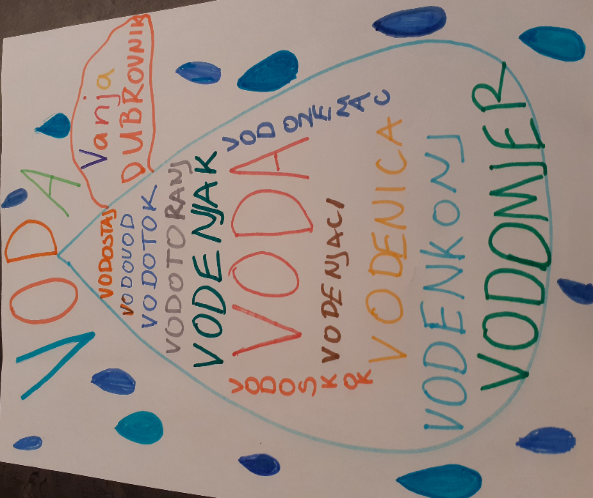 VODA
Vanja
DUBROVNIK
VODOSTAJ
VODOVOD
VODOTOK
VODOTORANJ
VODENJAK
VODOZEMAC
VODA
VODOSKOK
VODENJACI
VODENICA
VODENKONJ
VODOMJER